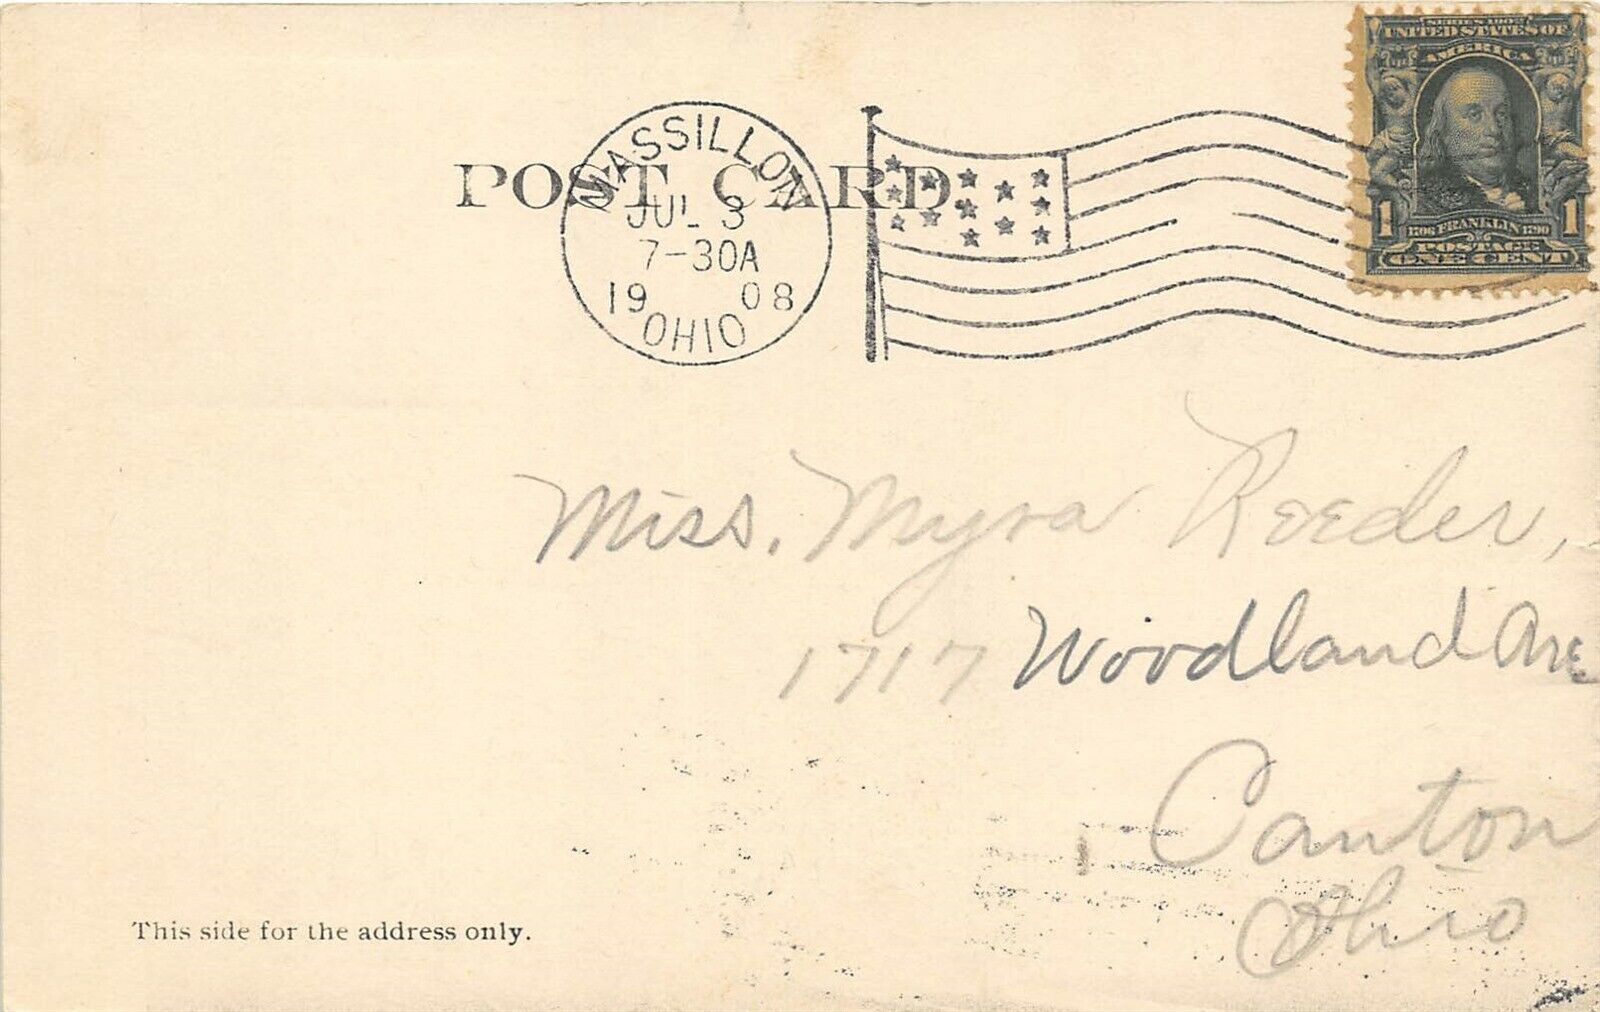 SERIES 1902
UNITED STATES OF
AMERICA
1 1
1706 FRANKLIN 1790
POSTAGE
ONE CENT
MASSILLON
JUL 3
7-30A
19 08
OHIO
POST CARD.
Miss. Myra Reeder,
1717 Woodland Ave
Canton
Ohio
This side for the address only.